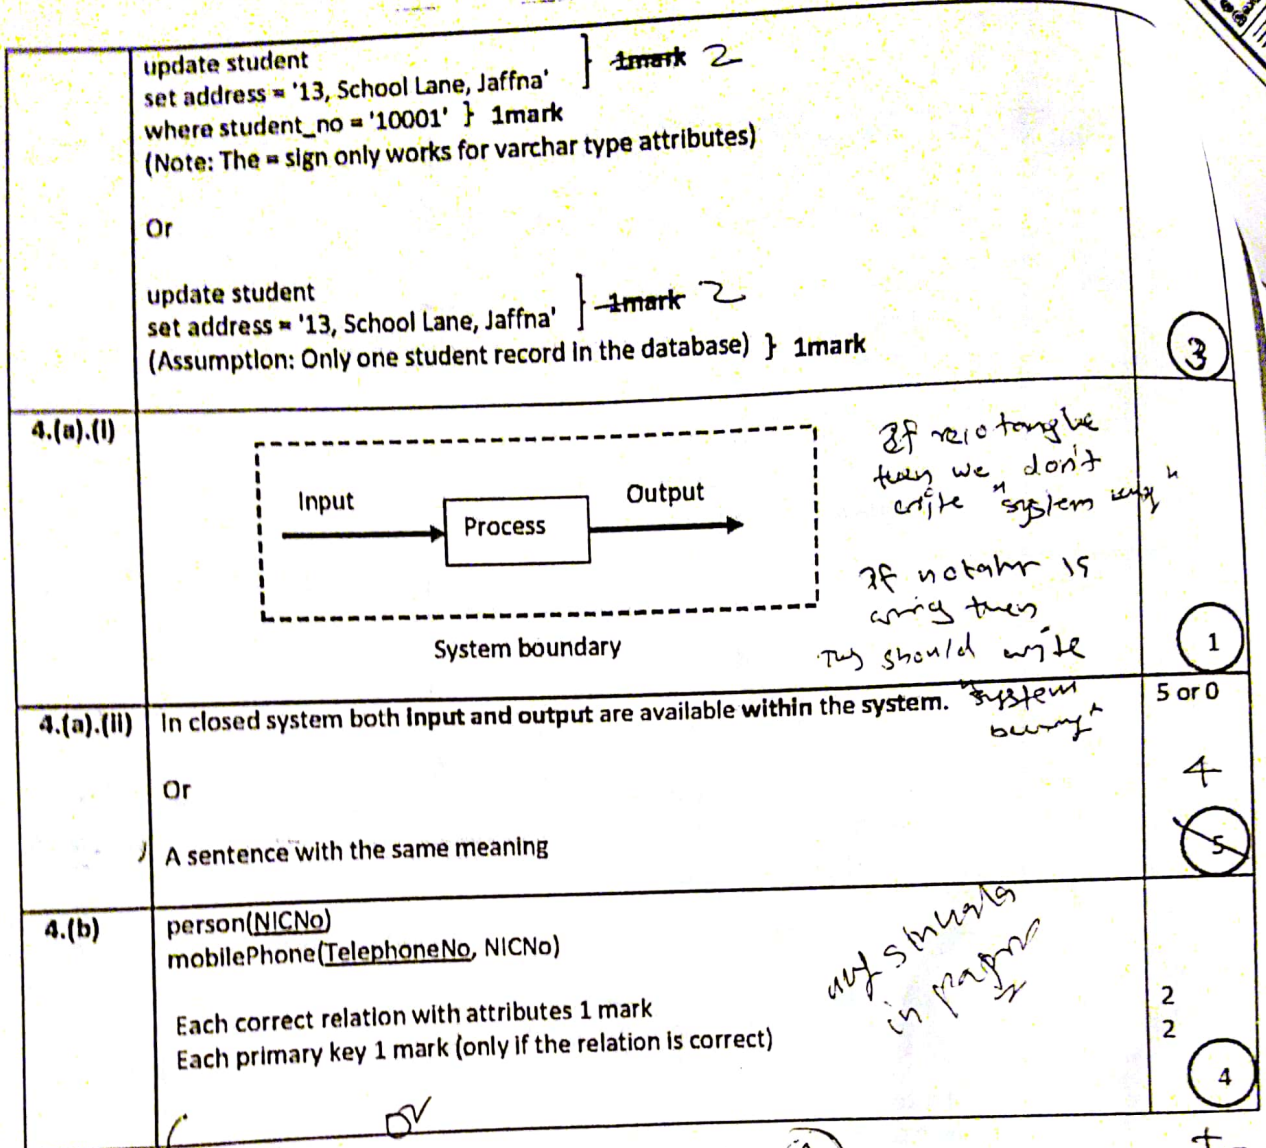 update student
set address = '13, School Lane, Jaffna' } 1mark 2
where student_no = '10001' } 1mark
(Note: The = sign only works for varchar type attributes)
Or
update student
set address = '13, School Lane, Jaffna' } 1mark 2
(Assumption: Only one student record in the database) } 1mark
3
4.(a).(i)
Input
Process
Output
System boundary
If
then we don't
write "system
If is
then
should write
"system
1
4.(a).(ii)
In closed system both input and output are available within the system.
Or
A sentence with the same meaning
5 or 0
4
5
4.(b)
person(NICNo)
mobilePhone(TelephoneNo, NICNo)
Each correct relation with attributes 1 mark
Each primary key 1 mark (only if the relation is correct)
in
2
2
4
or